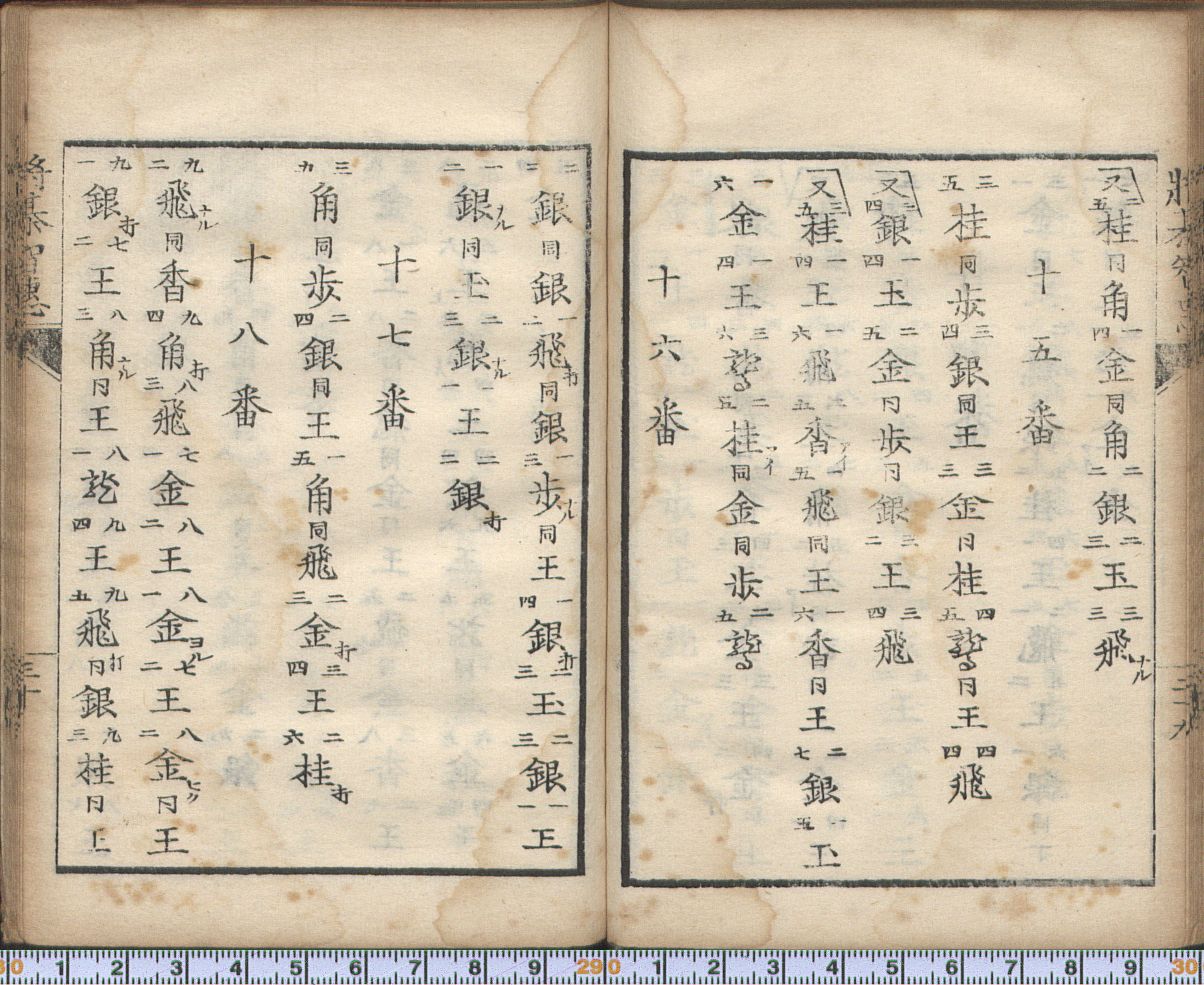 又 三五 桂 同 角 一四 金 同 角 二二 銀 二三 玉 三三 飛ナル
十五番
三五 桂 同 歩 三四 銀 同 王 三三 金 同 桂 四五 鷲 同 王 四四 飛
又 二四 銀 一四 玉 二五 金 同 歩 同 銀 三二 王 三四 飛
又 三五 桂 一四 王 一六 飛 一五 香アイ 一五 飛 同 王 一六 香 同 王 二七 銀 一五 玉
一六 金 一四 王 三六 鷲 二五 桂アイ 同 金 同 歩 二五 鷲
十六番
二二 銀 同 銀 一二 飛打 同 銀 一三 歩ナル 同 王 一四 銀打 二三 玉 二三 銀 一一 王
一二 銀ナル 同 玉 二三 銀ナル 一一 王 二二 銀打
十七番
三九 角 同 歩 二四 銀 同 王 一五 角打 同 飛 二三 金打 三四 王 二六 桂打
十八番
九二 飛ナル 同 香 九四 角打 八三 飛 七一 金 八二 王 八一 金ヨル 七二 王 八二 金ヒク 同 王
九一 銀打 七二 王 八三 角ナル 同 王 八一 龍 九四 王 九五 飛打 同 銀 九三 桂 同 上
将棊智恵
三十
三十九